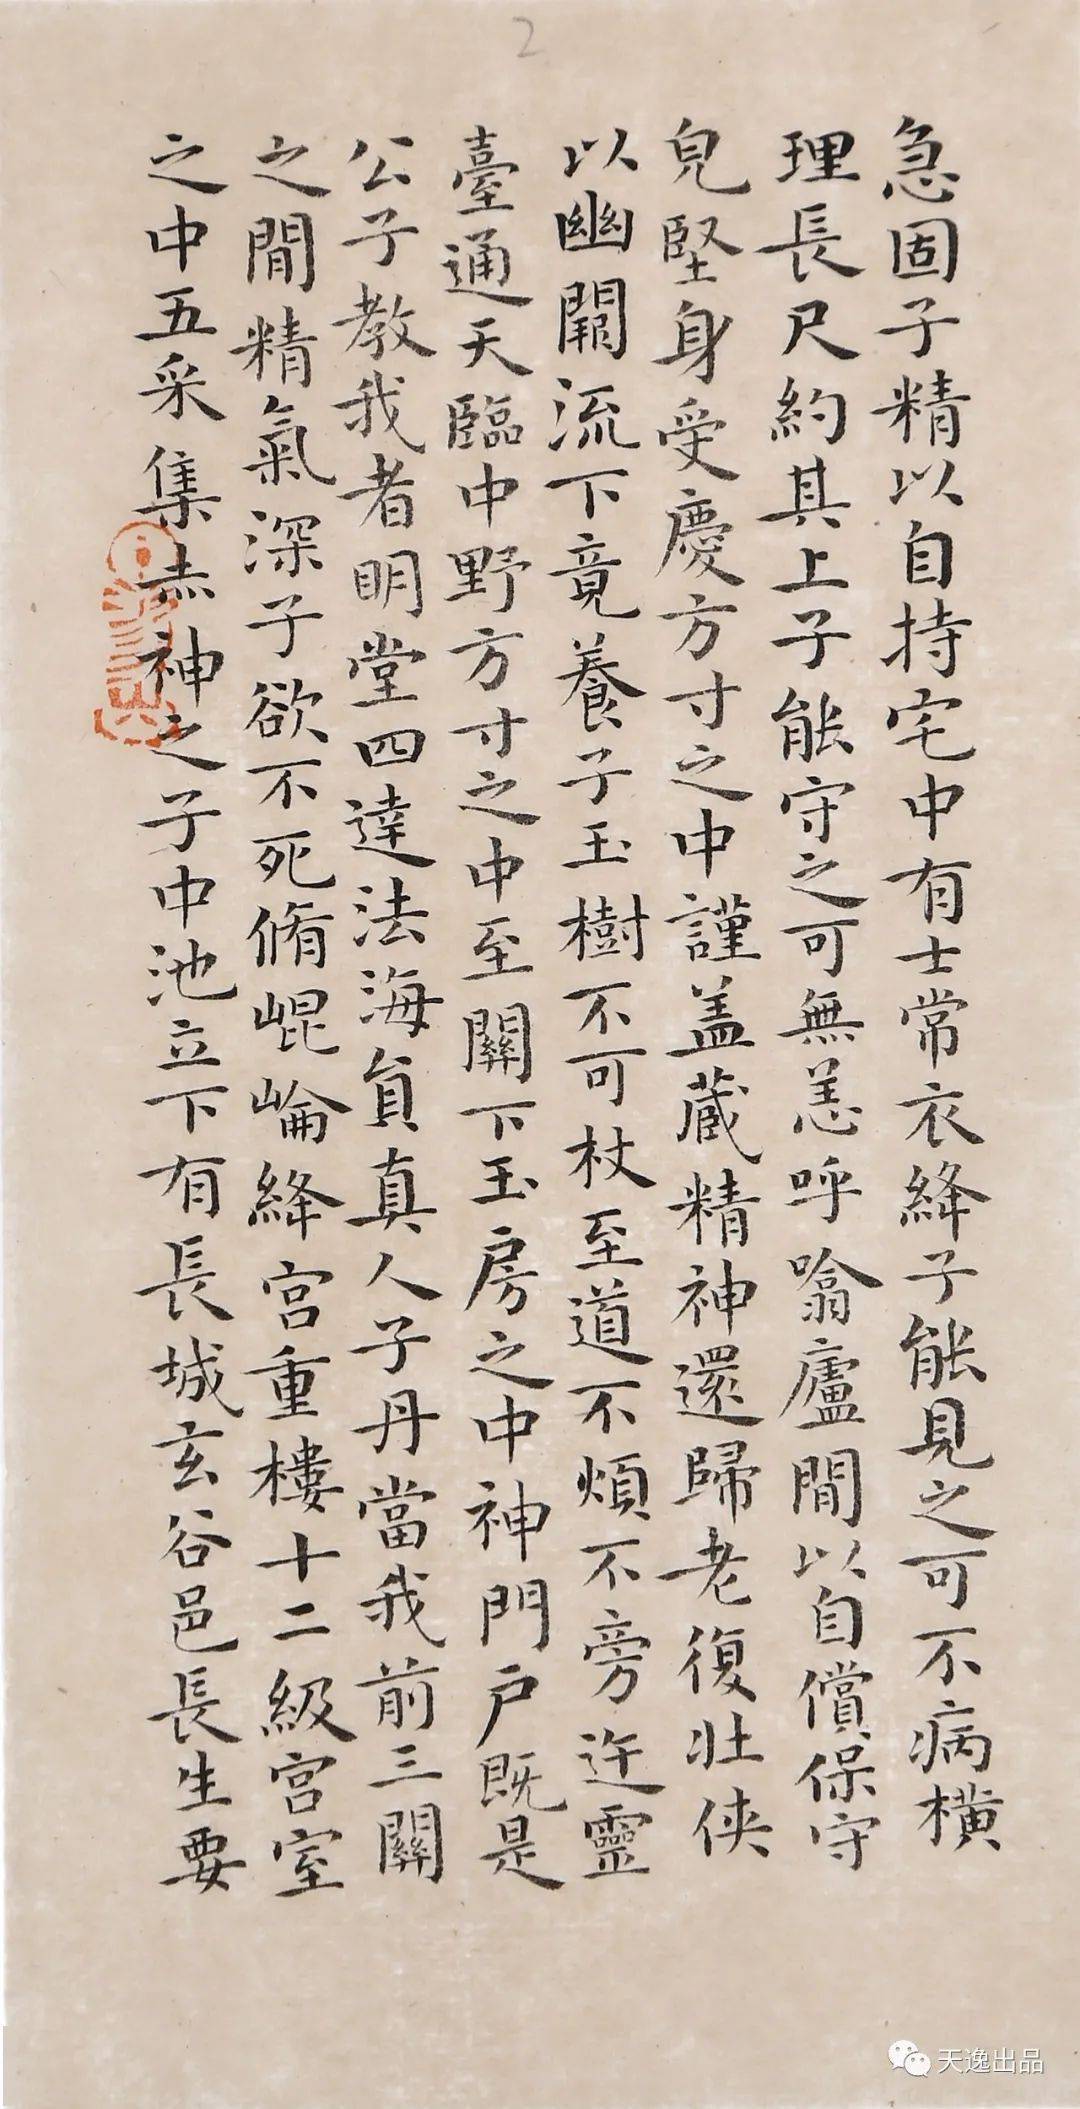 2
急固子精以自持宅中有士常衣絳子能見之可不病橫
理長尺約其上子能守之可無恙呼噏廬間以自償保守
皃堅身受慶方寸之中謹盖藏精神還歸老復壯俠
以幽闕流下竟養子玉樹不可杖至道不煩不旁迕靈
臺通天臨中野方寸之中至關下玉房之中神門户既是
公子教我者明堂四達法海員真人子丹當我前三關
之間精氣深子欲不死脩崐崘絳宫重樓十二級宫室
之中五采集赤神之子中池立下有長城玄谷邑長生要
天逸出品